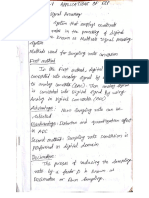 APPLICATIONS OF DSP
Signal Processing
System that employ multirate
in the processing of digital
known as Multirate Signal Processing
System
Methods used for Sampling rate conversion
First method
In the First method, digital
converted into analog signal by
to analog converter (DAC) Then analog signal
converted into Digital Signal by using
Analog to Digital Converter (ADC)
Advantage: New Sampling rate can be
selected
Disadvantage: Distortion and quantization effect
in ADC
Second method: Sampling rate conversion is
Performed in digital domain
Decimation
The process of reducing the Sampling
rate by a factor D is known as
Decimation or Down Sampling.